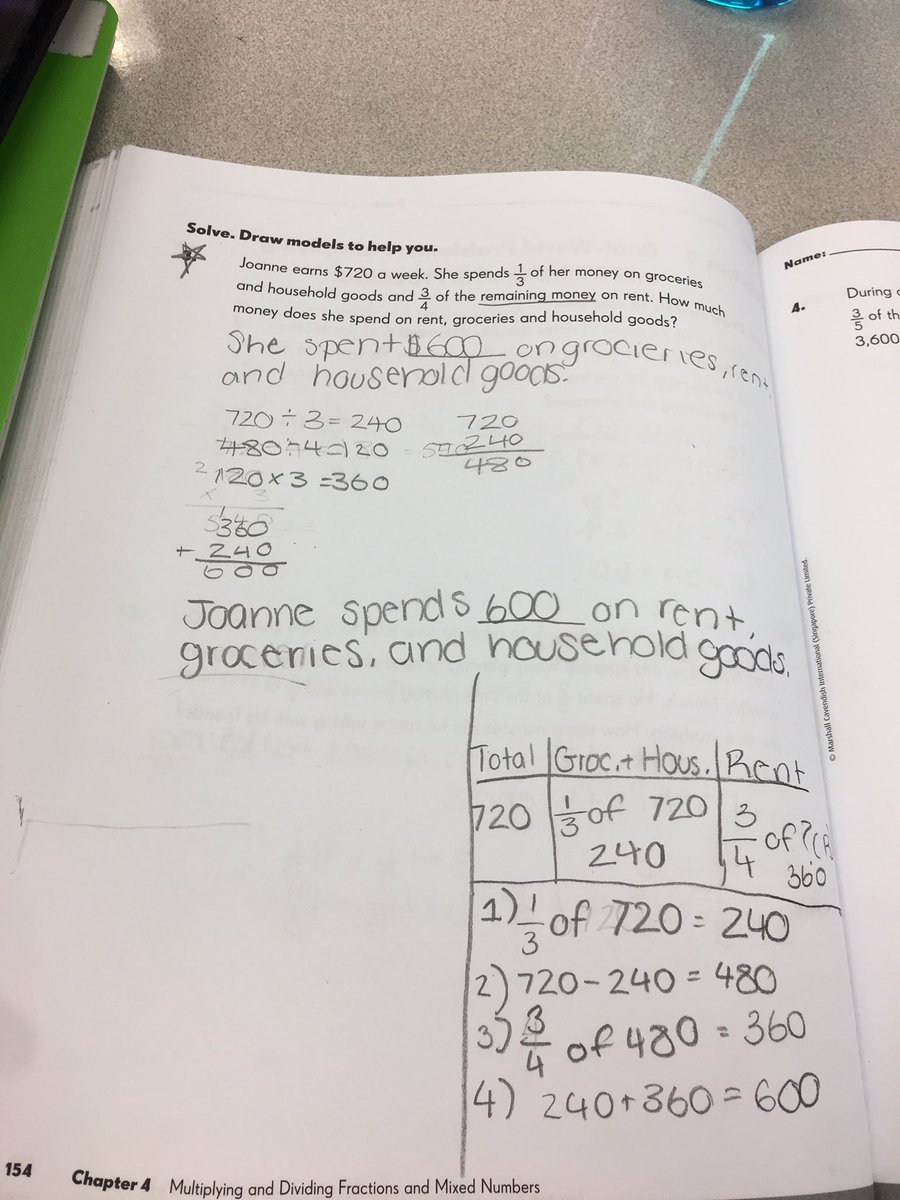 Solve. Draw models to help you.
3.
Joanne earns $720 a week. She spends 1/3 of her money on groceries
and household goods and 3/4 of the remaining money on rent. How much
money does she spend on rent, groceries and household goods?
She spent $600 on grocieries, rent
and household goods.
720 ÷ 3 = 240
480 ÷ 4 = 120
120 x 3 = 360
720
240
480
360
+ 240
600
Joanne spends 600 on rent,
groceries, and household goods.
Total | Groc. + Hous. | Rent
720 | 1/3 of 720 | 3/4 of ? (R.
240 | 360
1) 1/3 of 720 = 240
2) 720 - 240 = 480
3) 3/4 of 480 = 360
4) 240 + 360 = 600
154 Chapter 4 Multiplying and Dividing Fractions and Mixed Numbers
© Marshall Cavendish International (Singapore) Private Limited.
Name:
4.
During
3/5 of th
3,600